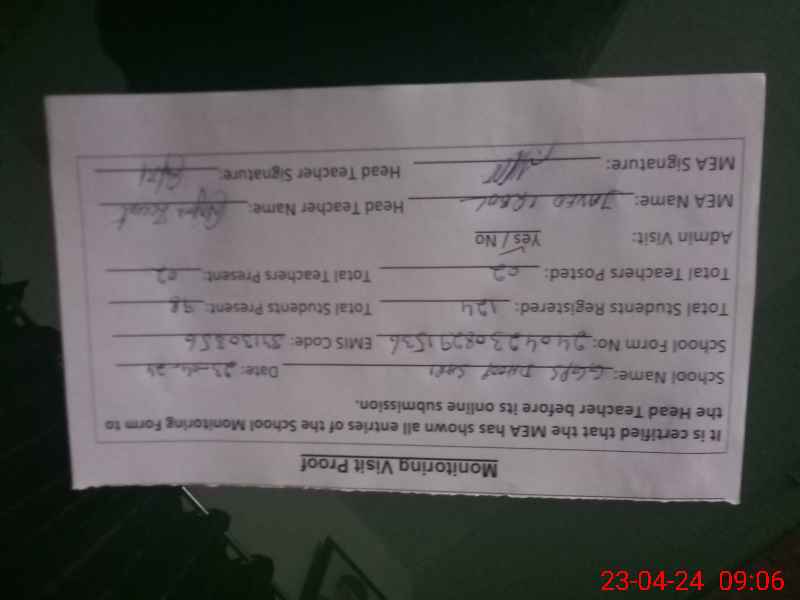 Monitoring Visit Proof
It is certified that the MEA has shown all entries of the School Monitoring Form to
the Head Teacher before its online submission.
School Name: GGPS Date: 23-04-24
School Form No: 24042308291536 EMIS Code: 37130856
Total Students Registered: 124 Total Students Present: 98
Total Teachers Posted: 02 Total Teachers Present: 02
Admin Visit: Yes / No
MEA Name: JAVED IQBAL Head Teacher Name:
MEA Signature: Head Teacher Signature:
23-04-24 09:06